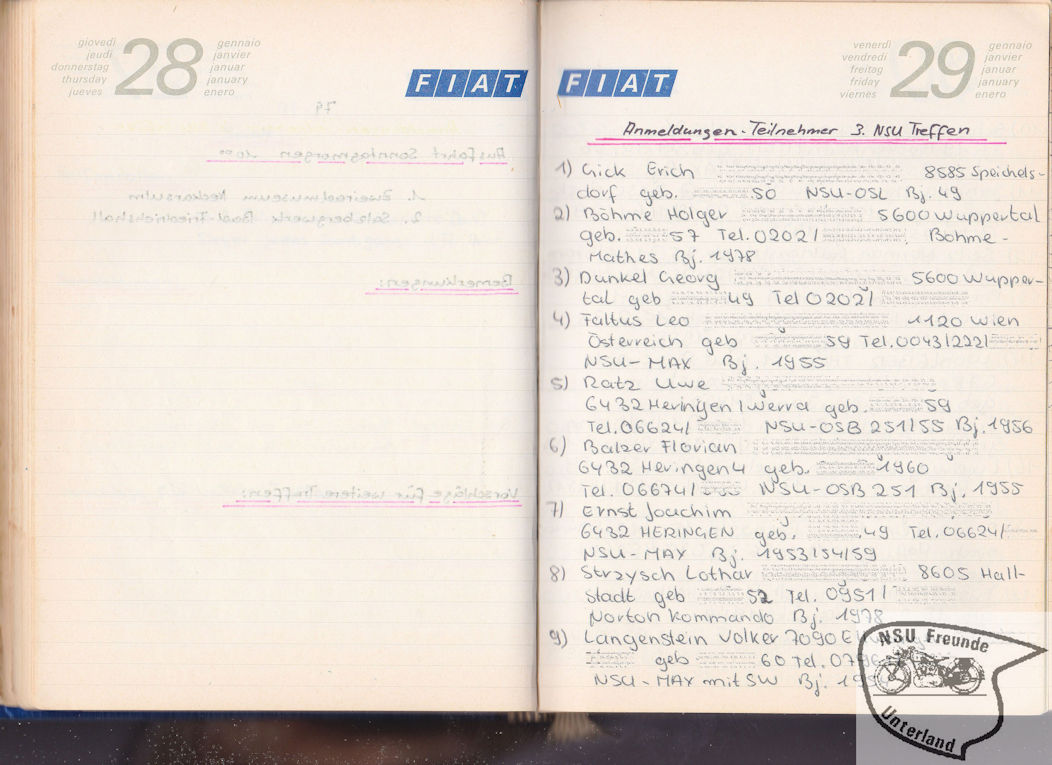 giovedì
jeudi
donnerstag
thursday
jueves
28
gennaio
janvier
januar
january
enero
FIAT
79
Ausfahrt Sonntagmorgen 10.00
1. Zweiradmuseum Neckarsulm
2. Salzbergwerk Bad-Friedrichshall
Bemerkungen:
Vorschläge für weitere Treffen:
FIAT
venerdì
vendredi
freitag
friday
viernes
29
gennaio
janvier
januar
january
enero
Anmeldungen-Teilnehmer 3. NSU Treffen
1) Gick Erich 8585 Speichels-
dorf geb. 50 NSU-OSL Bj. 49
2) Böhme Holger 5600 Wuppertal
geb. 57 Tel. 0202/ Böhme-
Mathes Bj. 1978
3) Dunkel Georg 5600 Wupper-
tal geb 49 Tel 0202/
4) Faltus Leo 1120 Wien
Österreich geb 59 Tel. 0043/222/
NSU-MAX Bj. 1955
5) Ratz Uwe
6432 Heringen/Werra geb. 59
Tel. 06624/ NSU-OSB 251/55 Bj. 1956
6) Balzer Florian
6432 Heringen 4 geb. 1960
Tel. 06674/ NSU-OSB 251 Bj. 1955
7) Ernst Joachim
6432 HERINGEN geb. 49 Tel. 06624/
NSU-MAX Bj. 1953/54/59
8) Strzysch Lothar 8605 Hall-
stadt geb 52 Tel. 0951/
Norton Kommando Bj. 1978
9) Langenstein Volker 7090 E
geb 60 Tel. 0796
NSU-MAX mit SW Bj. 195
NSU Freunde
Unterland